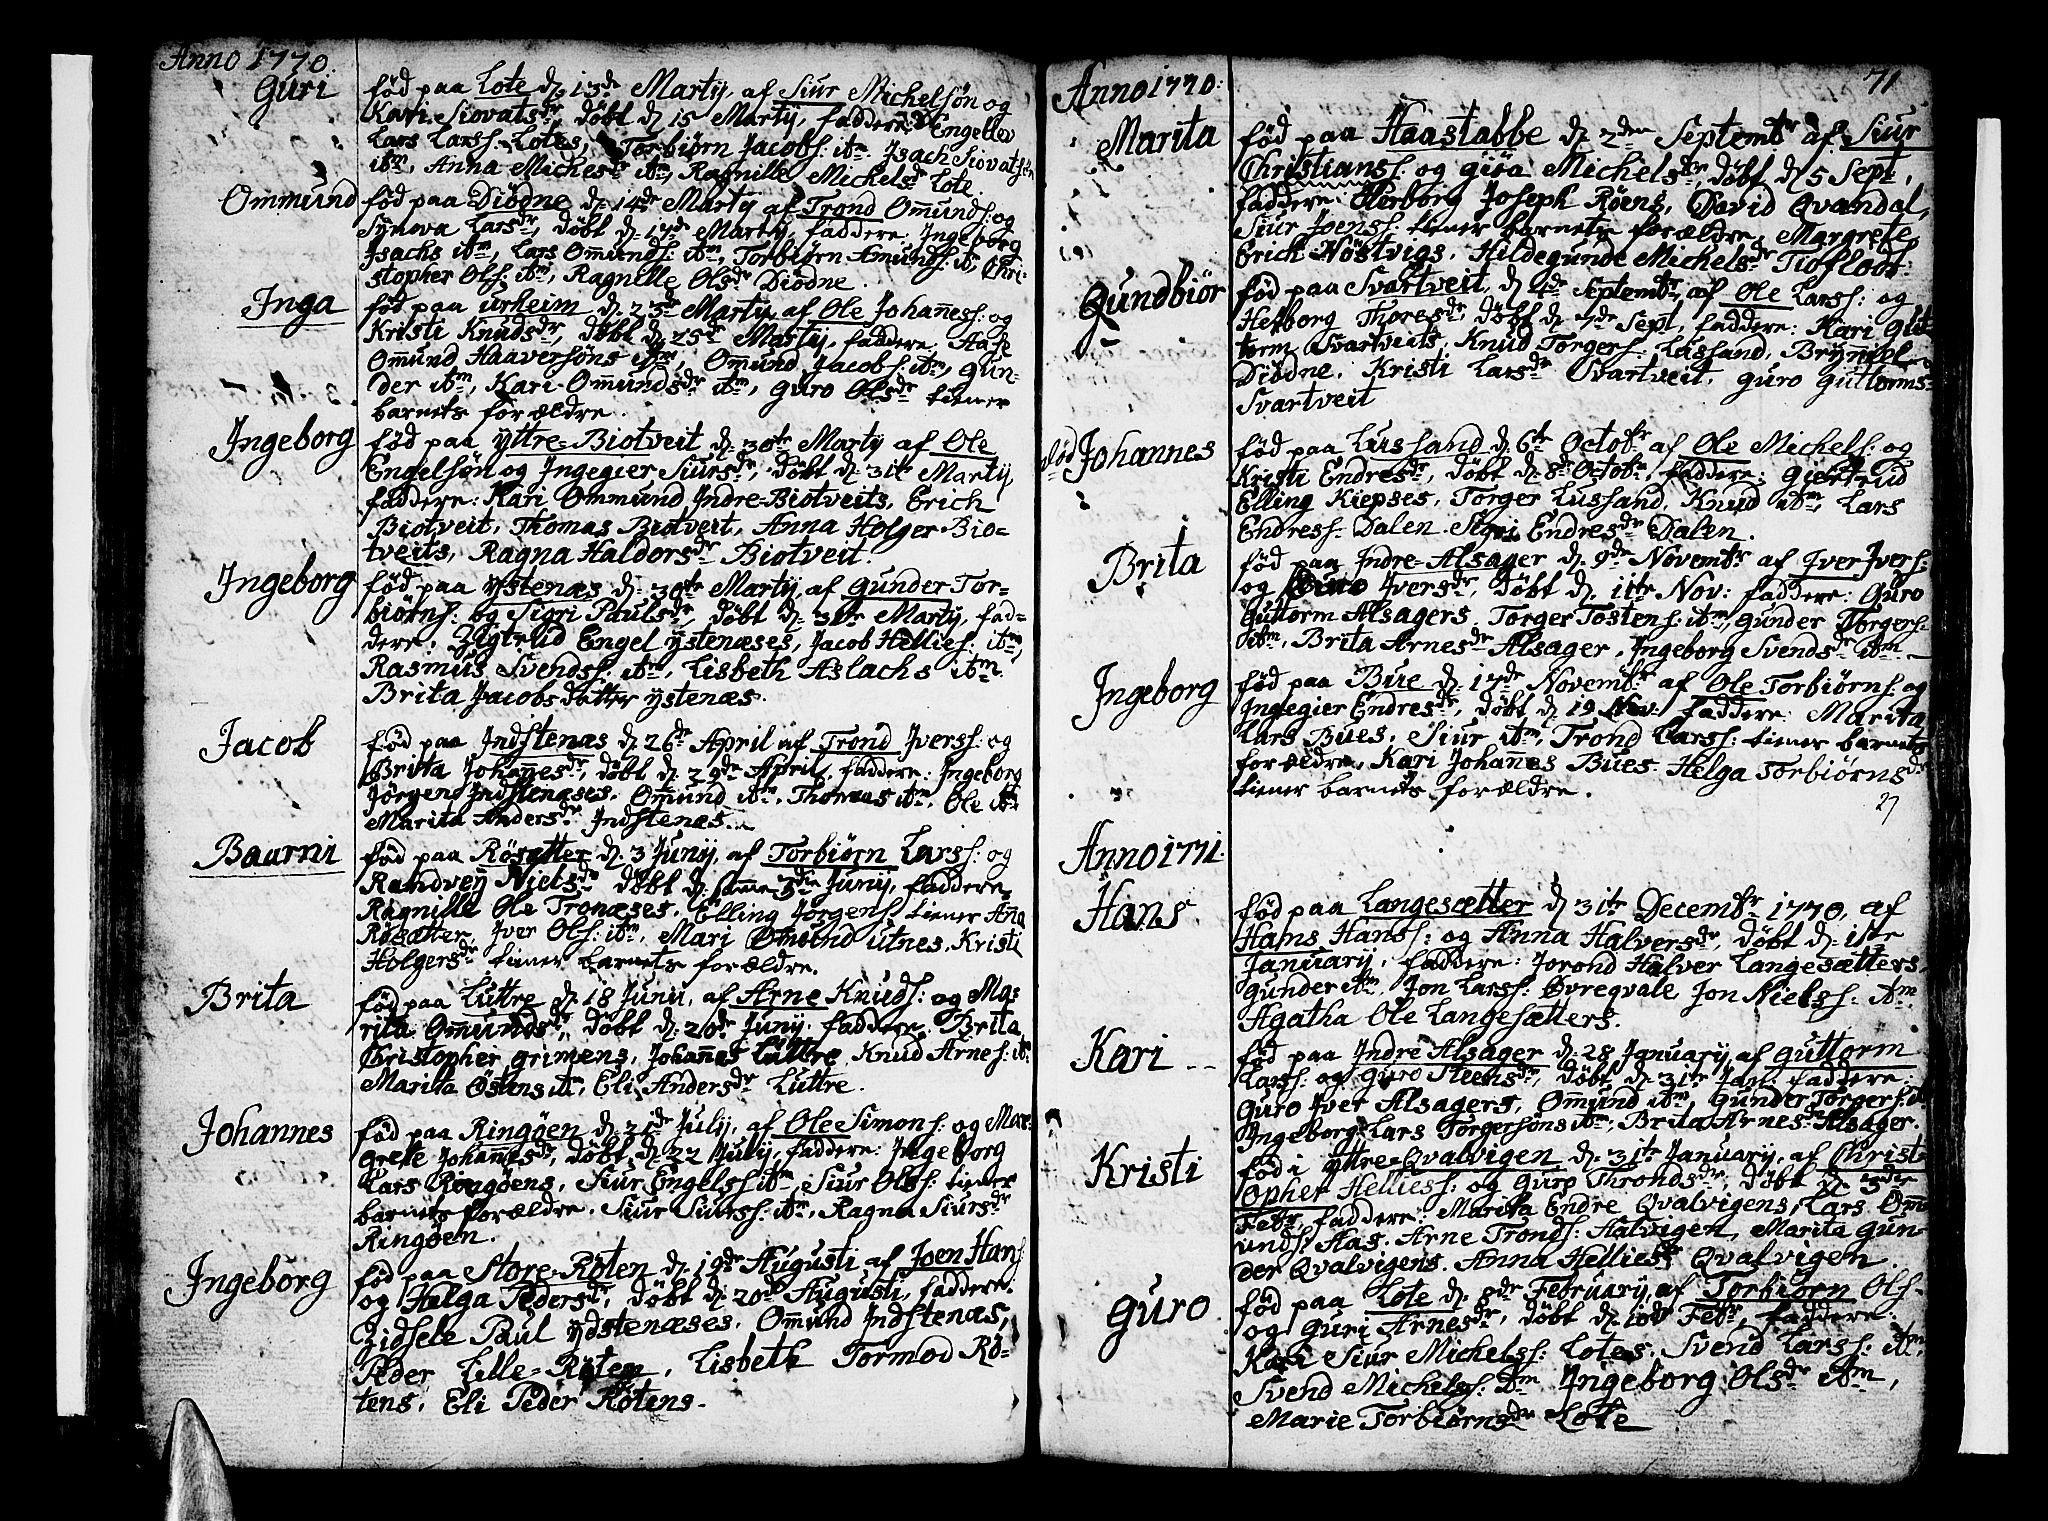 Anno 1770.
Guri
fød paa Lote d. 13de Martij, af Siur Michelsøn og
Kari Siovatsdr, døbt d. 15 Martij, faddere: Engelev
Lars Larss: Lotes, Torbiørn Jacobs: itm Isach Siovatsøn
itm, Anna Michelsdr itm, Ragnille Michelsdr Lote.
Ommund
fød paa Diødne d. 14de Martij af Trond Omundss: og
Synova Larsdr, døbt d. 17de Martij, faddere: Ingeborg
Isachs itm, Lars Omunds: itm, Torbiørn Amunds: itm, Chri-
stopher Ols: itm, Ragnille Olsdr Diødne.
Inga
fød paa Urheim d. 23de Martij af Ole Johaness: og
Kristi Knudsdr, døbt d. 25de Martij, faddere: Aase
Omund Haaversøns itm, Omund Jacobs: itm, Gun-
der itm, Kari Omundsdr itm, Guro Olsdr tiener
barnets forældre.
Ingeborg
fød paa Yttre-Biotveit d. 30te Martij af Ole
Engelsøn og Ingegier Siursdr, døbt d. 31te Martij,
faddere: Kari Ommund Indre-Biotveits, Erich
Biotveit, Thomas Biotveit, Anna Holger Bio-
tveits, Ragna Haldorsdr Biotveit.
Ingeborg
fød paa Ystenæs d. 30te Martij, af Gunder Tor-
biørns: og Sigri Paulsdr, døbt d. 31te Martij, fad-
dere: Engel Ystenæses, Jacob Hellies: itm,
Rasmus Svends: itm, Lisbeth Aslachs itm
Brita Jacobs datter Ystenæs.
Jacob
fød paa Indstenæs d. 26de April af Trond Ivers: og
Brita Johanesdr, døbt d. 29de April, faddere: Ingeborg
Jørgen Indstenæses, Omund itm, Thomas itm, Ole itm
Marita Andersdr Indstenæs.
Baarni
fød paa Røsætter d. 3 Junij, af Torbiørn Larss: og
Randvey Nielsdr døbt d. Junij, faddere,
Ragnille Ole Tronæses, Elling Jørgens: tiener Ana
Røsætter, Iver Ols: itm, Mari Omund Utnes, Kristi
Holgersdr tiener barnets forældre.
Brita
fød paa Luttre d. 18 Junij, af Arne Knuds: og Ma-
rita Omundsdr, døbt d. 20de Junij, faddere: Brita
Christopher Grimens, Johannes Luttre, Knud Arnes: itm
Marita Østens itm, Eli Andersdr Luttre.
Johannes
fød paa Ringøen d. 21de Julij, af Ole Simons: og Mar-
grete Johanesdr, døbt d. 22 Julij, faddere: Ingeborg
Lars Ringøens, Siur Engelss itm, Siur Olss: tiener
barnets forældre, Siur Siurss: itm, Ragna Siursdr
Ringøen.
Ingeborg
fød paa Store-Røten d. 19de Augusti af Joen Hans:
og Helga Pedersdr, døbt d. 20de Augusti, faddere:
Zidsele Paul Ydstenæses, Omund Indstenæs,
Peder Lille-Røten, Lisbeth Tormod Rö-
tens, Eli Peder Røtens.
71
Anno 1770:
Marita
fød paa Haastabbe d. 2den Septembr af Siur
Christianss: og Giøa Michelsdr døbt d. 5 Sept,
faddere: Herborg Joseph Røens, David Qvandal,
Siur Joens: tiener barnets forældre, Margrete
Erich Nøstvigs, Hildegunde Michelsdr Tioflodt.
Gundbiør
fød paa Svartveit d. 4de Septembr af Ole Larss: og
Herborg Thoresdr, døbt d. 7de Sept, faddere: Kari Gut-
torm Svartveits, Knud Torgers: Lussand, Brynnel
Diødne, Kristi Larsdr Svartveit, Guro Guttormsdr
Svartveit
død Johannes
fød paa Lussand d. 6te Octobr af Ole Michels: og
Kristi Endresdr, døbt d. 8de Octobr, faddere: Giertrud
Elling Kiepses, Torger Lussand, Knud itm, Lars
Endress: Dalen. Sigri Endresdr Dalen.
Brita
fød paa Indre-Alsager d. 9de Novembr af Iver Ivers:
og Guro Iversdr, døbt d. 11te Nov: faddere: Guro
Guttorm Alsagers, Torger Tostens: itm, Gunder Torgers:
itm, Brita Arnesdr Alsager, Ingeborg Svendsdr itm
Ingeborg
fød paa Bue d. 17de Novembr af Ole Torbiørns: og
Ingegier Endresdr, døbt d. 19 Nov: faddere: Marita
Lars Bues, Siur itm, Trond Larss: tiener barnets
forældre, Kari Johanes Bues. Helga Torbiørnsdr
tiener barnets forældre.
27
Anno 1771.
Hans.
fød paa Langesætter d. 31te Decembr 1770, af
Hans Hans: og Anna Halversdr, døbt d. 1ste
January, faddere: Jorond Halver Langesætters,
Gunder itm, Jon Larss: Øvreqvale Jon Nielss: itm
Agatha Ole Langesætters.
Kari
fød paa Indre Alsager d. 28 January, af Guttorm
Larss: og Guro Steensdr, døbt d. 31te Jan: faddere:
Guro Iver Alsagers, Omund itm, Gunder Torgers: itm
Ingeborg Lars Torgersøns itm, Brita Arnesdr Alsager.
Kristi
fød i Yttre-Qvalvigen d. 31te January, af Christ-
opher Helliess: og Guro Throndsdr, døbt d. 3die
Febr, faddere: Marita Endre Qvalvigens, Lars Om-
unds: Aas. Arne Tronds: Halvigen, Marita Gun-
der Qvalvigens. Anna Helliesdr Qvalvigen.
Guro
fød paa Lote d. 8de February, af Torbiørn Ols-
og Guri Arnesdr, døbt d. 10de Febr, faddere:
Kari Siur Michelss: Lotes, Svend Larss: itm,
Svend Michelss: itm Ingeborg Olsdr itm,
Marie Torbiørnsdr Lote